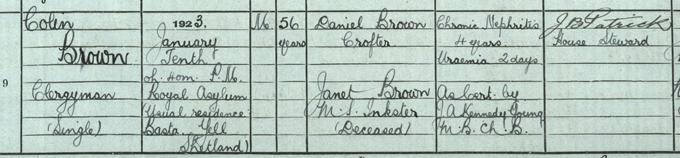 9
Colin
Brown
Clergyman
(Single)
1923.
January
Tenth
0h. 40m. P.M.
Royal Asylum
Usual residence
Basta. Yell
Shetland)
M.
56
years
Daniel Brown
Crofter
Janet Brown
M.S. Inkster
(Deceased)
Chronic Nephritis
4 years.
Uraemia 2 days
As Cert. by
J. A. Kennedy Young
M.B. Ch. B.
J B Patrick
House Steward